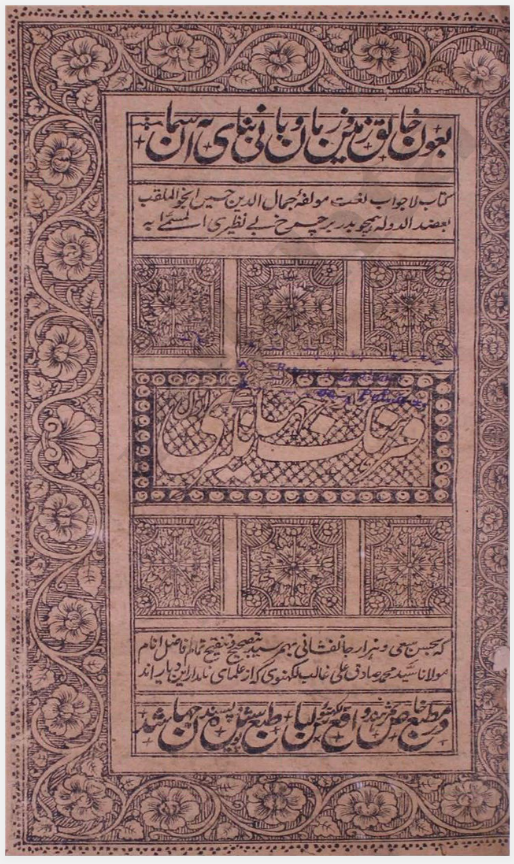 بعون خالق زمین و زمان و بانی بنای آسمان
کتاب لاجواب لغت مولفهٔ جمال الدین حسین انجو الملقب
بعضد الدوله همچو بدر بر چرخ بے نظیری المسمے به
فرهنگ جهانگیری
که بحسن سعی و هزار جانفشانی بهم رسید بتصحیح و تنقیح تمام فاضل انام
مولانا سید محمد صادق علی غالب لکهنوی که از علمای نامدار این دیار اند
در مطبع خاص ثمر هند واقع لکهنؤ طبع شد